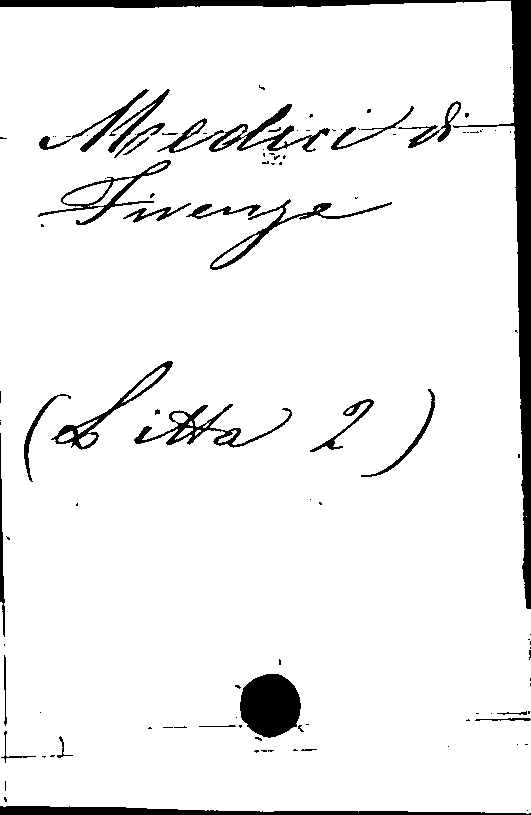 Medici di
Firenze
(Litta 2)